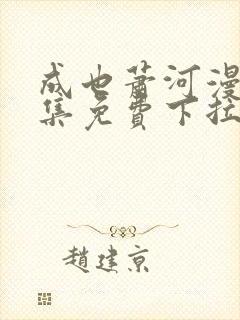 成也萧河漫
集免費下拉
趙建京